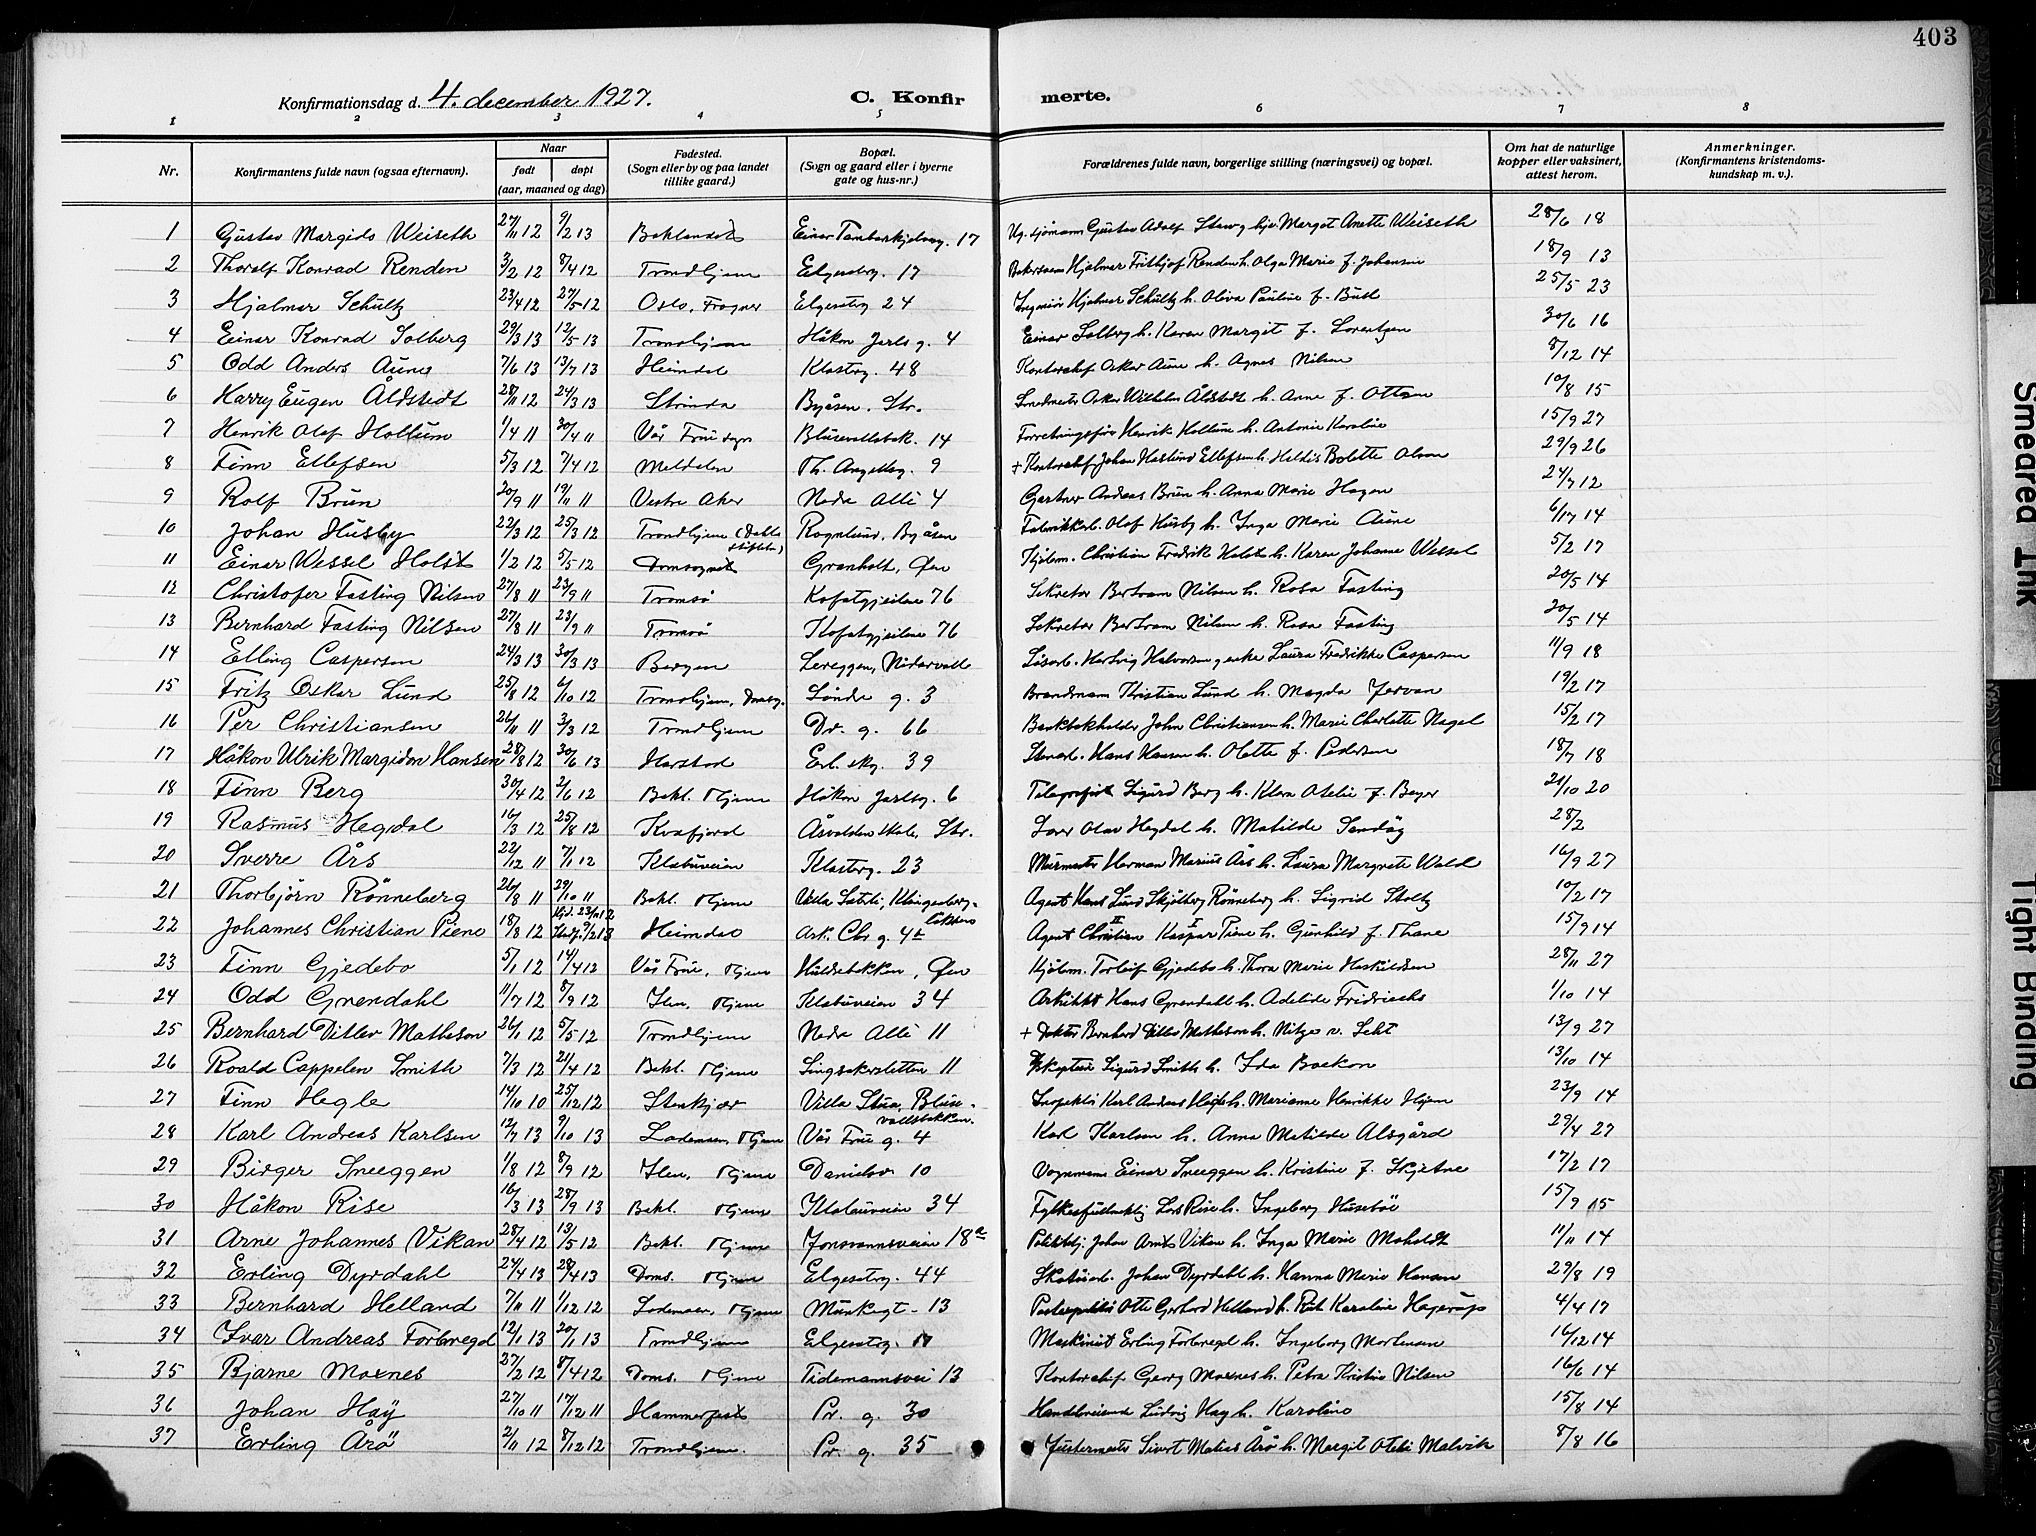 403
Konfirmationsdag d. 4. december 1927. C. Konfirmerte.
1 2 3 4 5 6 7 8
Nr. Konfirmantens fulde navn (ogsaa efternavn). Naar født døpt (aar, maaned og dag) Fødested. (Sogn eller by og paa landet tillike gaard.) Bopæl. (Sogn og gaard eller i byerne gate og hus-nr.) Forældrenes fulde navn, borgerlige stilling (næringsvei) og bopæl. Om hat de naturlige kopper eller vaksinert, attest herom. Anmerkninger. (Konfirmantens kristendomskundskap m. v.).
1 Gustav Margido Weiseth 27/11 12 9/2 13 Baklandet Einar Tambarskjelvesg. 17 Ug. sjømann Gustav Adolf Margot Anette Weiseth 28/6 18
2 Thoralf Konrad Renden 3/2 12 8/4 12 Trondhjem Elgesetrg. 17 Hjalmar Frithjof Renden h. Olga Marie f. Johansen 18/9 13
3 Hjalmar Schultz 23/4 12 27/5 12 Oslo, Frogner Elgesetrg 24 Ingeniør Hjalmar Schultz h. Oliva Pauline f. 25/5 23
4 Einar Konrad Solberg 29/3 13 12/5 13 Trondhjem Håkon Jarls g. 4 Einar Solberg h. Karen Margit f. Lorentzen 30/6 16
5 Odd Anders Aune 7/6 13 13/7 13 Heimdal Klosterg. 48 Kontorchef Oskar Aune h. Agnes Nilsen 8/12 14
6 Harry Eugen Åldstedt 28/11 12 24/3 13 Strinda Byåsen. Str. Smedmester Oskar Wilhelm Åldstedt h. Anne f. Ottesen 10/8 15
7 Henrik Olaf Hollum 1/4 11 30/4 11 Vår Frue sogn Blusevoldsbak. 14 Forretningsfører Henrik Hollum h. Antonie Karoline 15/9 27
8 Finn Ellefsen 5/3 12 7/4 12 Meldalen Th. Angellsg. 9 + Kontorchef Johan Haslund Ellefsen h. Haldis Bolette Olsen 29/9 26
9 Rolf Brun 20/9 11 19/11 11 Vestre Aker Nedre Allé 4 Gartner Andreas Brun h. Anna Marie Hagen 24/7 12
10 Johan Husby 22/3 12 25/3 12 Trondhjem (Dahls stiftelse) Rognlund, Byåsen Fabrikkarb. Olaf Husby h. Inga Marie Aune 6/17 14
11 Einar Wessel Holst 1/2 12 5/5 12 Domsognet Granholt, Øen Kjøbm. Christian Fredrik Holst h. Karen Johanne Wessel 5/2 17
12 Christofer Fasting Nilsen 27/8 11 23/9 11 Tromsø Kofatgjeilene 76 Sekretær Bertram Nilsen h. Rosa Fasting 20/5 14
13 Bernhard Fasting Nilsen 27/8 11 23/9 11 Tromsø Kofatgjeilene 76 Sekretær Bertram Nilsen h. Rosa Fasting 20/5 14
14 Elling Caspersen 24/3 13 30/3 13 Bergen Lereggen, Nidarvoll Løsarb. Hartvig Halvorsen g enke Laura Fredrikke Caspersen 11/9 18
15 Fritz Oskar Lund 25/8 12 6/10 12 Trondhjem, Domsg. Søndre g. 3 Brandmann Kristian Lund h. Magda Jervan 19/2 17
16 Per Christiansen 26/11 11 3/3 12 Trondhjem Dr. g. 66 Bankbokholder John Christiansen h. Marie Charlotte Nagel 15/2 17
17 Håkon Ulrik Margidon Hansen 28/8 12 30/6 13 Harstad Erl. skg. 39 Stenarb. Hans Hansen h. Olette f. Pedersen 18/7 18
18 Finn Berg 30/4 12 2/6 12 Bakl. Thjem Håkon Jarlsg. 6 Telegrafist Sigurd Berg h. Klara Otelie f. Beyer 21/10 20
19 Rasmus Hegdal 16/3 12 25/8 12 Kvæfjord Åsvolden skole, Str. Lærer Olav Hegdal h. Matilde Sandøy 28/2
20 Sverre Års 22/12 11 7/1 12 Klæbuveien Klosterg. 23 Murmester Herman Marius Års h. Laura Margrete Wold 16/9 27
21 Thorbjørn Rønneberg 26/8 11 29/10 11 Bakl. Thjem Villa Solsti, Klingenbergløkken Agent Hans Lund Skjølberg Rønneberg h. Sigrid Stoltz 10/2 17
22 Johannes Christian Piene 18/8 12 Hjd. 23/11 12 7/2 13 Heimdal Ark. Chr. g. 4b Agent Christian Kaspar Piene h. Gunhild f. Thane 15/9 14
23 Finn Gjedebo 5/1 12 14/4 12 Vår Frue, Thjem Huldsbekken, Øen Kjøbm. Torleif Gjedebo h. Thora Marie Haskildsen 28/11 27
24 Odd Grendahl 11/7 12 8/9 12 Ilen, Thjem Klæbuveien 34 Arkitekt Hans Grendahl h. Adelide Fridrichs 1/10 14
25 Bernhard Ditlev Matheson 26/1 12 5/5 12 Trondhjem Nedre Allé 11 + Doktor Bernhard Ditlev Matheson h. Nitze v. 13/9 27
26 Roald Cappelen Smith 7/3 12 21/4 12 Bakl. Thjem Singsakersletten 11 Skibskaptein Sigurd Smith h. Ida Backen 13/10 14
27 Finn Hegle 14/10 10 25/12 12 Stenkjær Villa Stua, Blusevoldsbakken. Inspektør Karl Andreas Hegle h. Marianne Henrikke Hjem 23/9 14
28 Karl Andreas Karlsen 12/7 13 9/10 13 Lademoen, Thjem Vår Frue g. 4 Karl Karlsen h. Anna Matilde Alsgård 29/4 27
29 Birger Sneeggen 1/8 12 8/9 12 Ilen, Thjem Danielsv. 10 Vognmann Einar Sneeggen h. Kristine f. Skjetne 17/2 17
30 Håkon Rise 16/3 13 28/9 13 Bakl. Thjem Klæbuveien 34 Fylkesfullmektig Lars Rise h. Ingeborg Husebøe 15/9 15
31 Arne Johannes Vikan 28/4 12 13/5 12 Bakl. Thjem Jonsvannsveien 18a Politibtj. Johan Arnts Vikan h. Inga Marie Moholdt 11/11 14
32 Erling Dyrdahl 24/4 13 28/4 13 Doms. Thjem Elgesetrg. 44 Skotøiarb. Johan Dyrdahl h. Hanna Marie Hansen 29/8 19
33 Bernhard Helland 7/11 11 1/12 12 Lademoen, Thjem Munkegt. 13 Postexpeditør Otte Gerhard Helland h. Rut Karoline Hagerup 4/4 17
34 Ivar Andreas Forbregd 12/1 13 20/1 13 Trondhjem Elgesetrg. 11 Maskinist Erling Forbregd h. Ingeborg Mortensen 16/12 14
35 Bjarne Moxnes 27/2 12 8/4 12 Doms. Thjem Tidemannsvei 13 Kontorchef Georg Moxnes h. Petra Kristine Nilsen 16/6 14
36 Johan Høy 27/10 11 17/12 11 Hammerfest Pr. g. 30 Handelsreisende Ludvig Høy h. Karoline 15/8 14
37 Erling Årø 2/11 12 8/12 12 Trondhjem. Pr. g. 35 Justermester Sivert Matias Årø h. Margit Otelie Malvik 8/8 16
Smeared Ink
Tight Binding